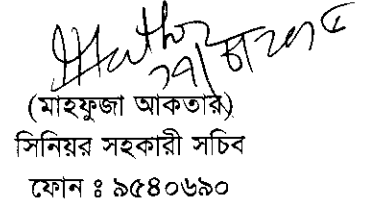 ২৭/৮/২০১৫
(মাহফুজা আকতার)
সিনিয়র সহকারী সচিব
ফোন ঃ ৯৫৪০৬৯০